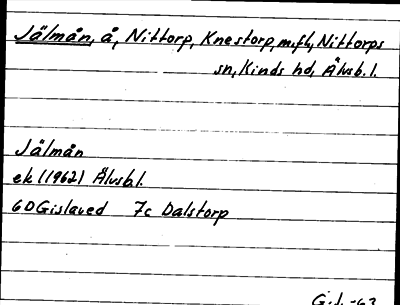 Jälmån, å, Nittorp, Knestorp, m.fl., Nittorps
sn, Kinds hd, Älvsb. l.
Jälmån
ek (1962) Älvsb.l.
6D Gislaved 7c Dalstorp
G.J. -63